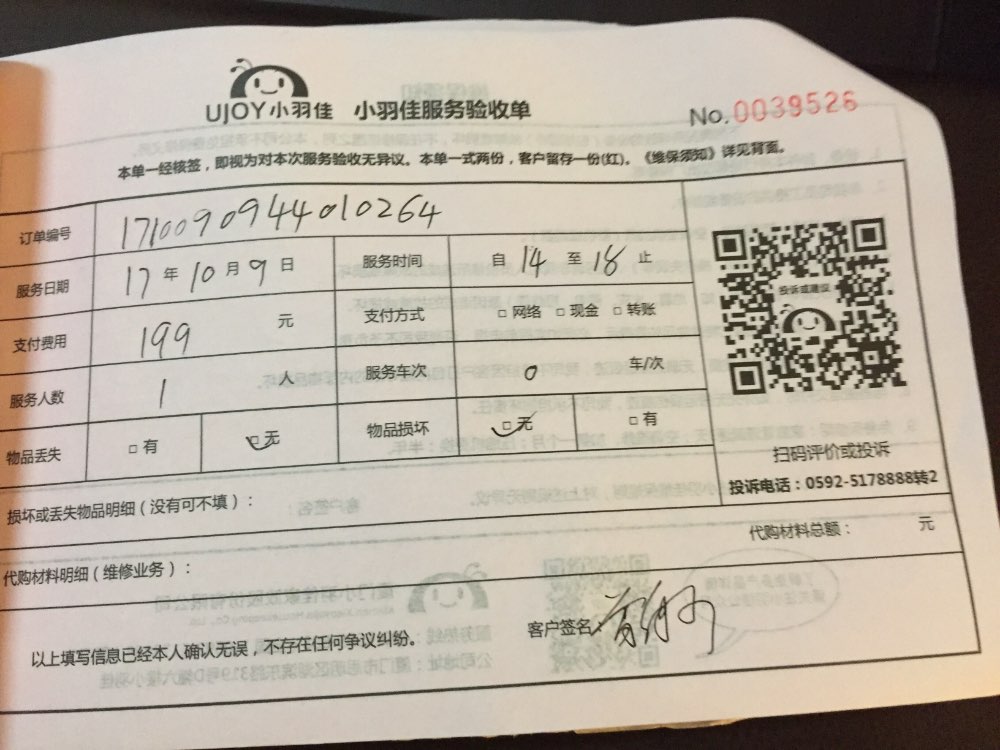 UJOY小羽佳 小羽佳服务验收单
No.0039526
本单一经核签，即视为对本次服务验收无异议。本单一式两份，客户留存一份(红)。《维保须知》详见背面。
订单编号 1710090944010264
服务日期 17 年 10 月 9 日 服务时间 自 14 至 18 止
支付费用 199 元 支付方式 □ 网络 □ 现金 □ 转账
服务人数 1 人 服务车次 0 车/次
物品丢失 □ 有 □ 无 物品损坏 □ 无 □ 有
投诉或建议
扫码评价或投诉
投诉电话：0592-5178888转2
损坏或丢失物品明细（没有可不填）：
代购材料明细（维修业务）： 代购材料总额： 元
以上填写信息已经本人确认无误，不存在任何争议纠纷。 客户签名：